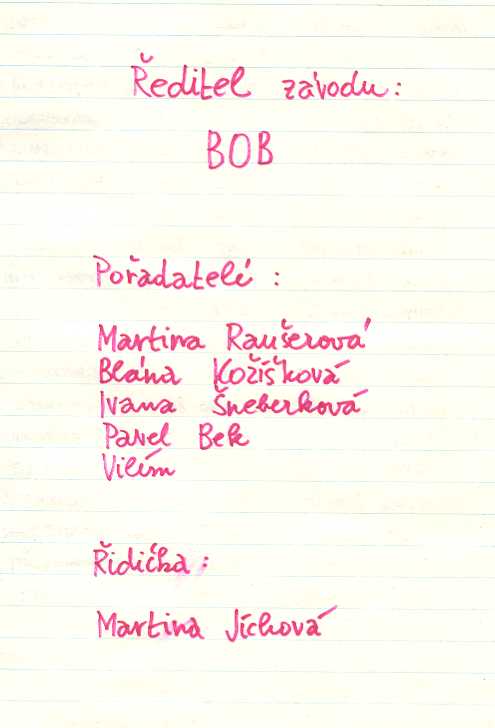 Ředitel závodu:
BOB
Pořadatelé :
Martina Raušerová
Blána Kožíšková
Ivana Šneberková
Pavel Bek
Vilím
Řidička :
Martina Jíchová